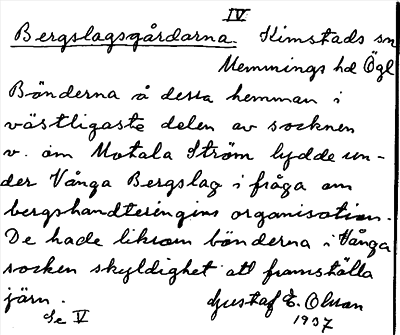 IV
Bergslagsgårdarna Kimstads sn
Memmings hd Ögl
Bönderna å dessa hemman i
västligaste delen av socknen
v. om Motala Ström lydde un-
der Vånga Bergslag i fråga om
bergshandteringins organisation.
De hade liksom bönderna i Vånga
socken skyldighet att framställa
järn.
Se V
Gustaf E. Olsson
1937